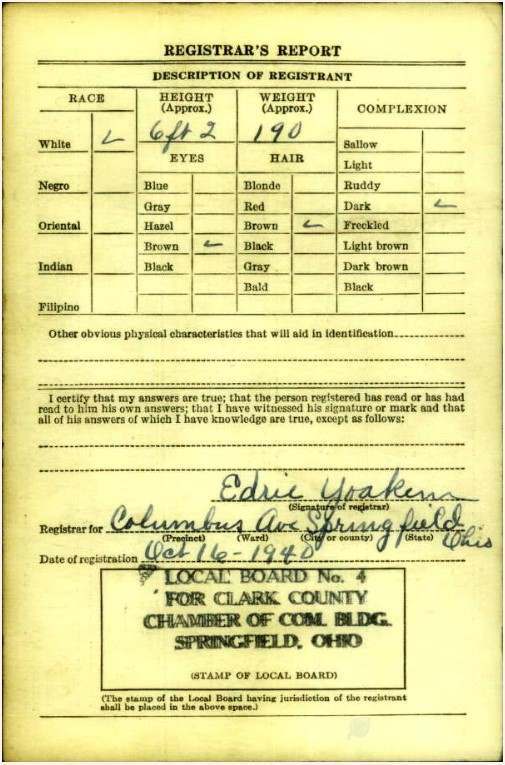 REGISTRAR'S REPORT
DESCRIPTION OF REGISTRANT
RACE HEIGHT (Approx.) WEIGHT (Approx.) COMPLEXION
White ✓ 6 ft 2 190 Sallow
EYES HAIR Light
Negro Blue Blonde Ruddy
Gray Red Dark ✓
Oriental Hazel Brown ✓ Freckled
Brown ✓ Black Light brown
Indian Black Gray Dark brown
Bald Black
Filipino
Other obvious physical characteristics that will aid in identification
I certify that my answers are true; that the person registered has read or has had
read to him his own answers; that I have witnessed his signature or mark and that
all of his answers of which I have knowledge are true, except as follows:
Edric Yoakem
(Signature of registrar)
Registrar for Columbus Ave Springfield Ohio
(Precinct) (Ward) (City or county) (State)
Date of registration Oct 16-1940
LOCAL BOARD No. 4
FOR CLARK COUNTY
CHAMBER OF COM. BLDG.
SPRINGFIELD, OHIO
(STAMP OF LOCAL BOARD)
(The stamp of the Local Board having jurisdiction of the registrant
shall be placed in the above space.)